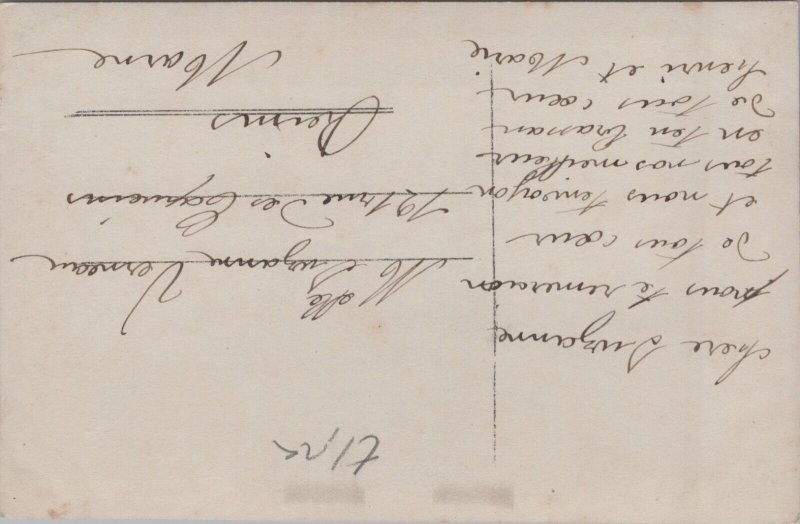 chere Suzanne
nous te remercion
de tous cœur
et nous t'envoyon
tous nos meilleur
en ten brassan
de tous cœur
henri et Marie
Melle Suzanne Verneau
121 rue des Capucins
Reims
Marne